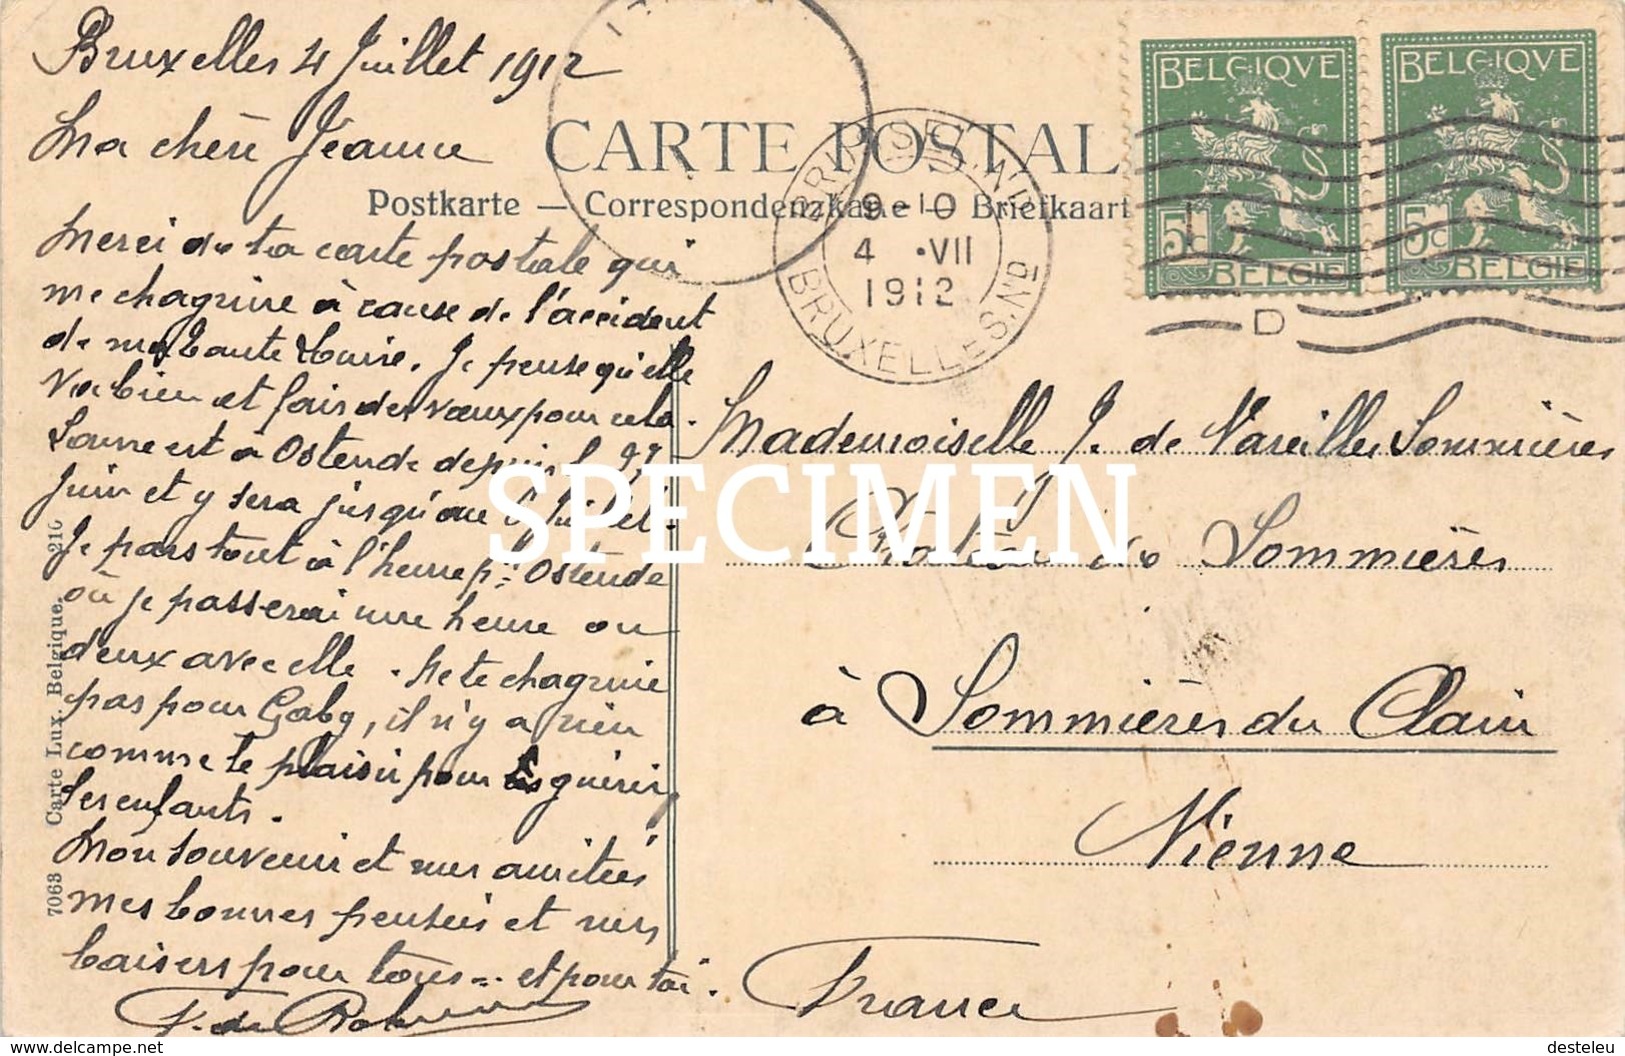 Bruxelles 4 Juillet 1912
Ma chère Jeanne
CARTE POSTALE
Postkarte — Correspondenzkarte — Briefkaart
Merci de ta carte postale qui
me chagrine à cause de l'accident
de ma tante Louise. Je pense qu'elle
va bien et fais des vœux pour cela.
est à Ostende depuis le 27
juin et y sera jusqu'au Juillet.
Je pars tout à l'heure pr Ostende
où je passerai une heure ou
deux avec elle. Ne te chagrine
pas pour Gaby, il n'y a rien
comme le plaisir pour guérir
les enfants.
Mon souvenir et mes amitiés
mes bonnes pensées et mes
baisers pour tous et pour toi.
F. de
7063 Carte Lux. Belgique. 210
9-10
4 •VII
1912
BRUXELLES
D
BELGIQVE
5c
BELGIE
BELGIQVE
5c
BELGIE
Mademoiselle J. de Vareilles Sommières
Château de Sommières
à Sommières du Clain
Vienne
France
SPECIMEN
www.delcampe.net
desteleu